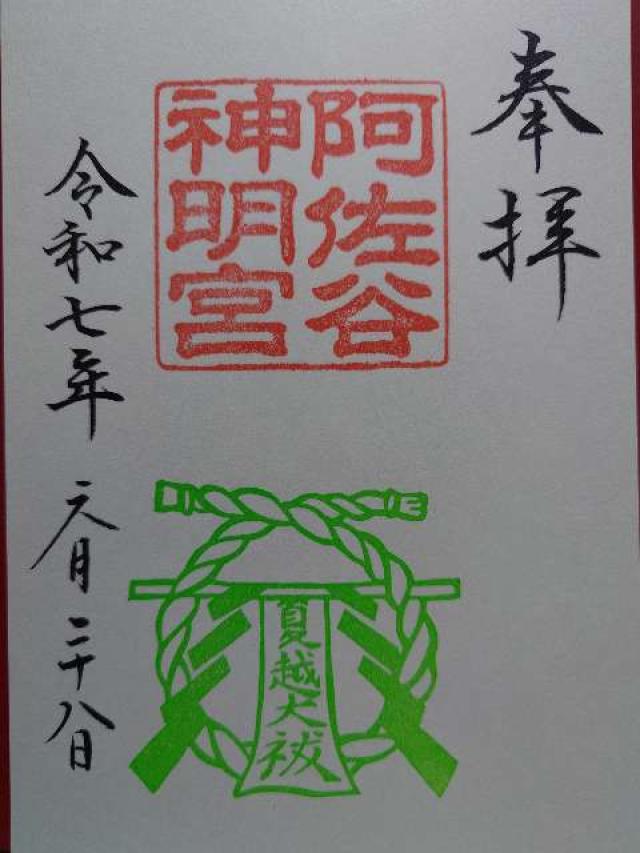 奉拝
阿佐谷
神明宮
夏越大祓
令和七年 六月二十八日